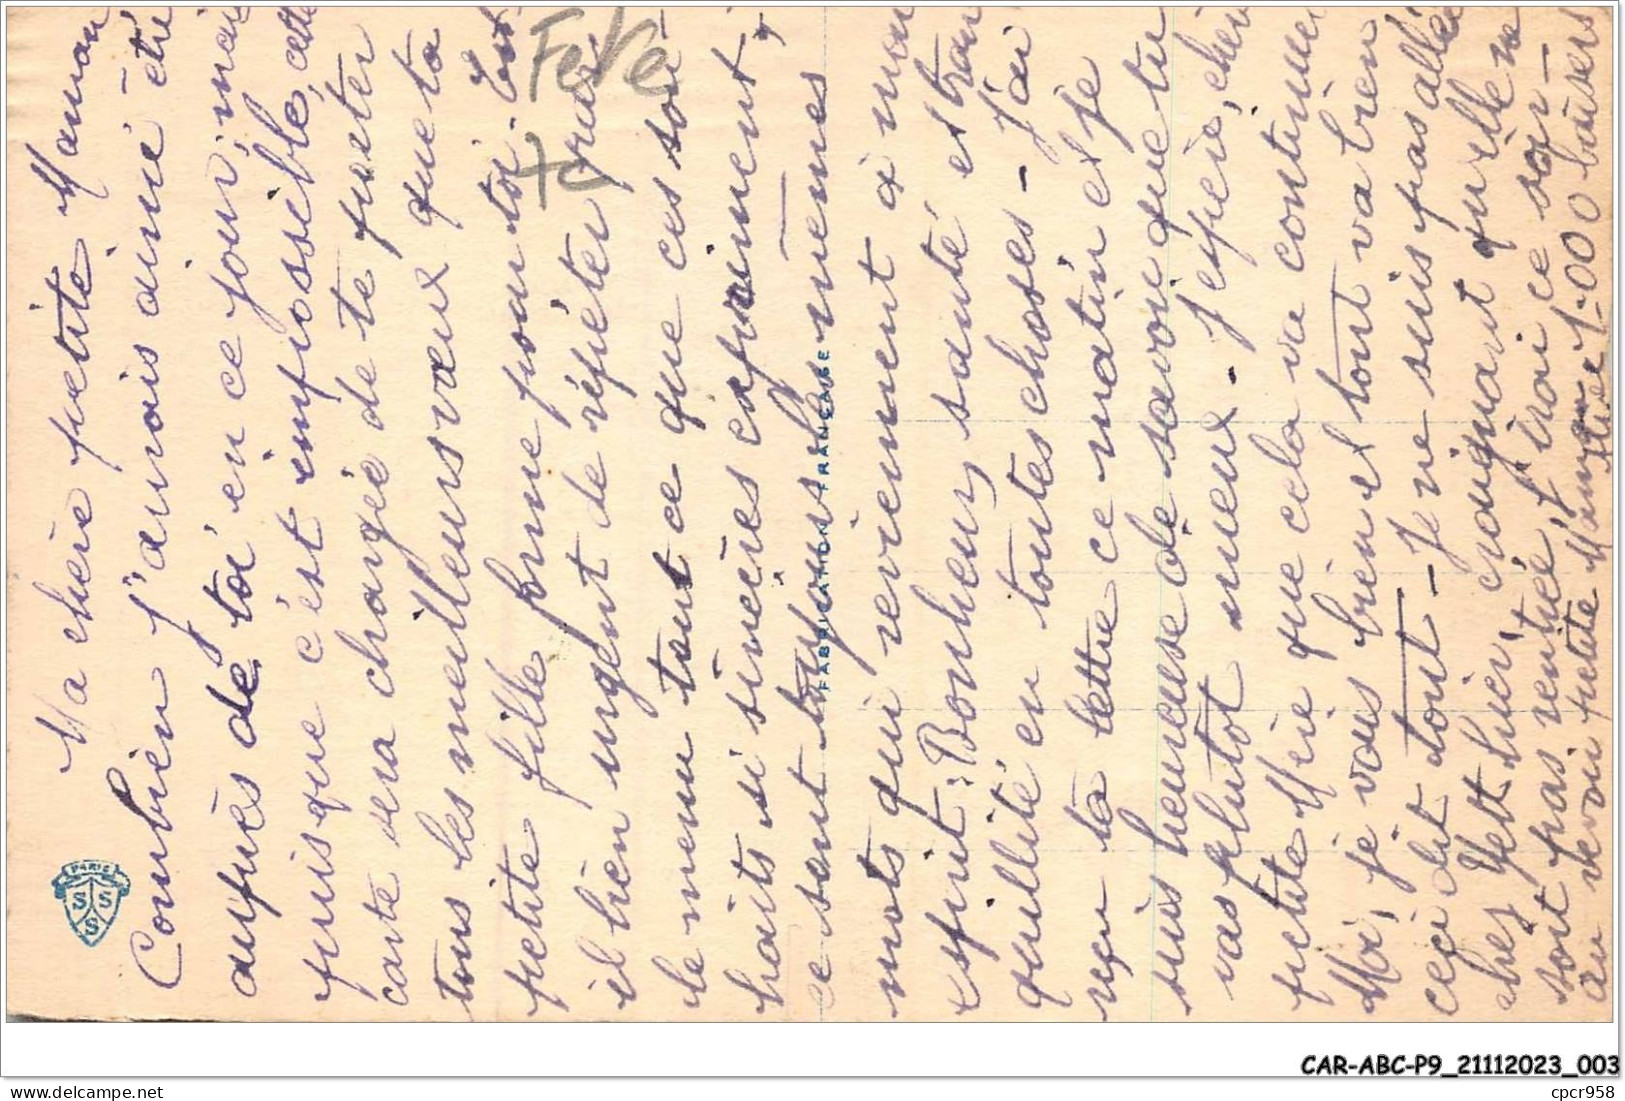 Ma chère petite Maman
Combien j'aurois aimé être
auprès de toi en ce jour, mais
puisque c'est impossible, cette
carte sera chargée de te porter
tous les meilleurs vœux que ta
petite fille forme pour toi. Est
il bien urgent de répéter
le menu tout ce que ces sou
haits si sincères expriment,
ce sont toujours les mêmes
mots qui reviennent à mon
esprit: Bonheur, santé et tran
quillité en toutes choses - J'ai
reçu ta lettre ce matin et je
suis heureuse de savoir que tu
vas plutôt mieux. J'espère, chère
petite Mère que cela va continuer
Moi, je vous bien et tout va bien
ceci dit tout - Je ne suis pas allée
chez Yett hier, craignant qu'elle ne
soit pas rentrée, j'irai ce soir -
au revoir petite Maman 1.000 baisers
Fete
to
PARIS
S S
S
FABRICATION FRANÇAISE
CAR-ABC-P9_21112023_003
cpcr958